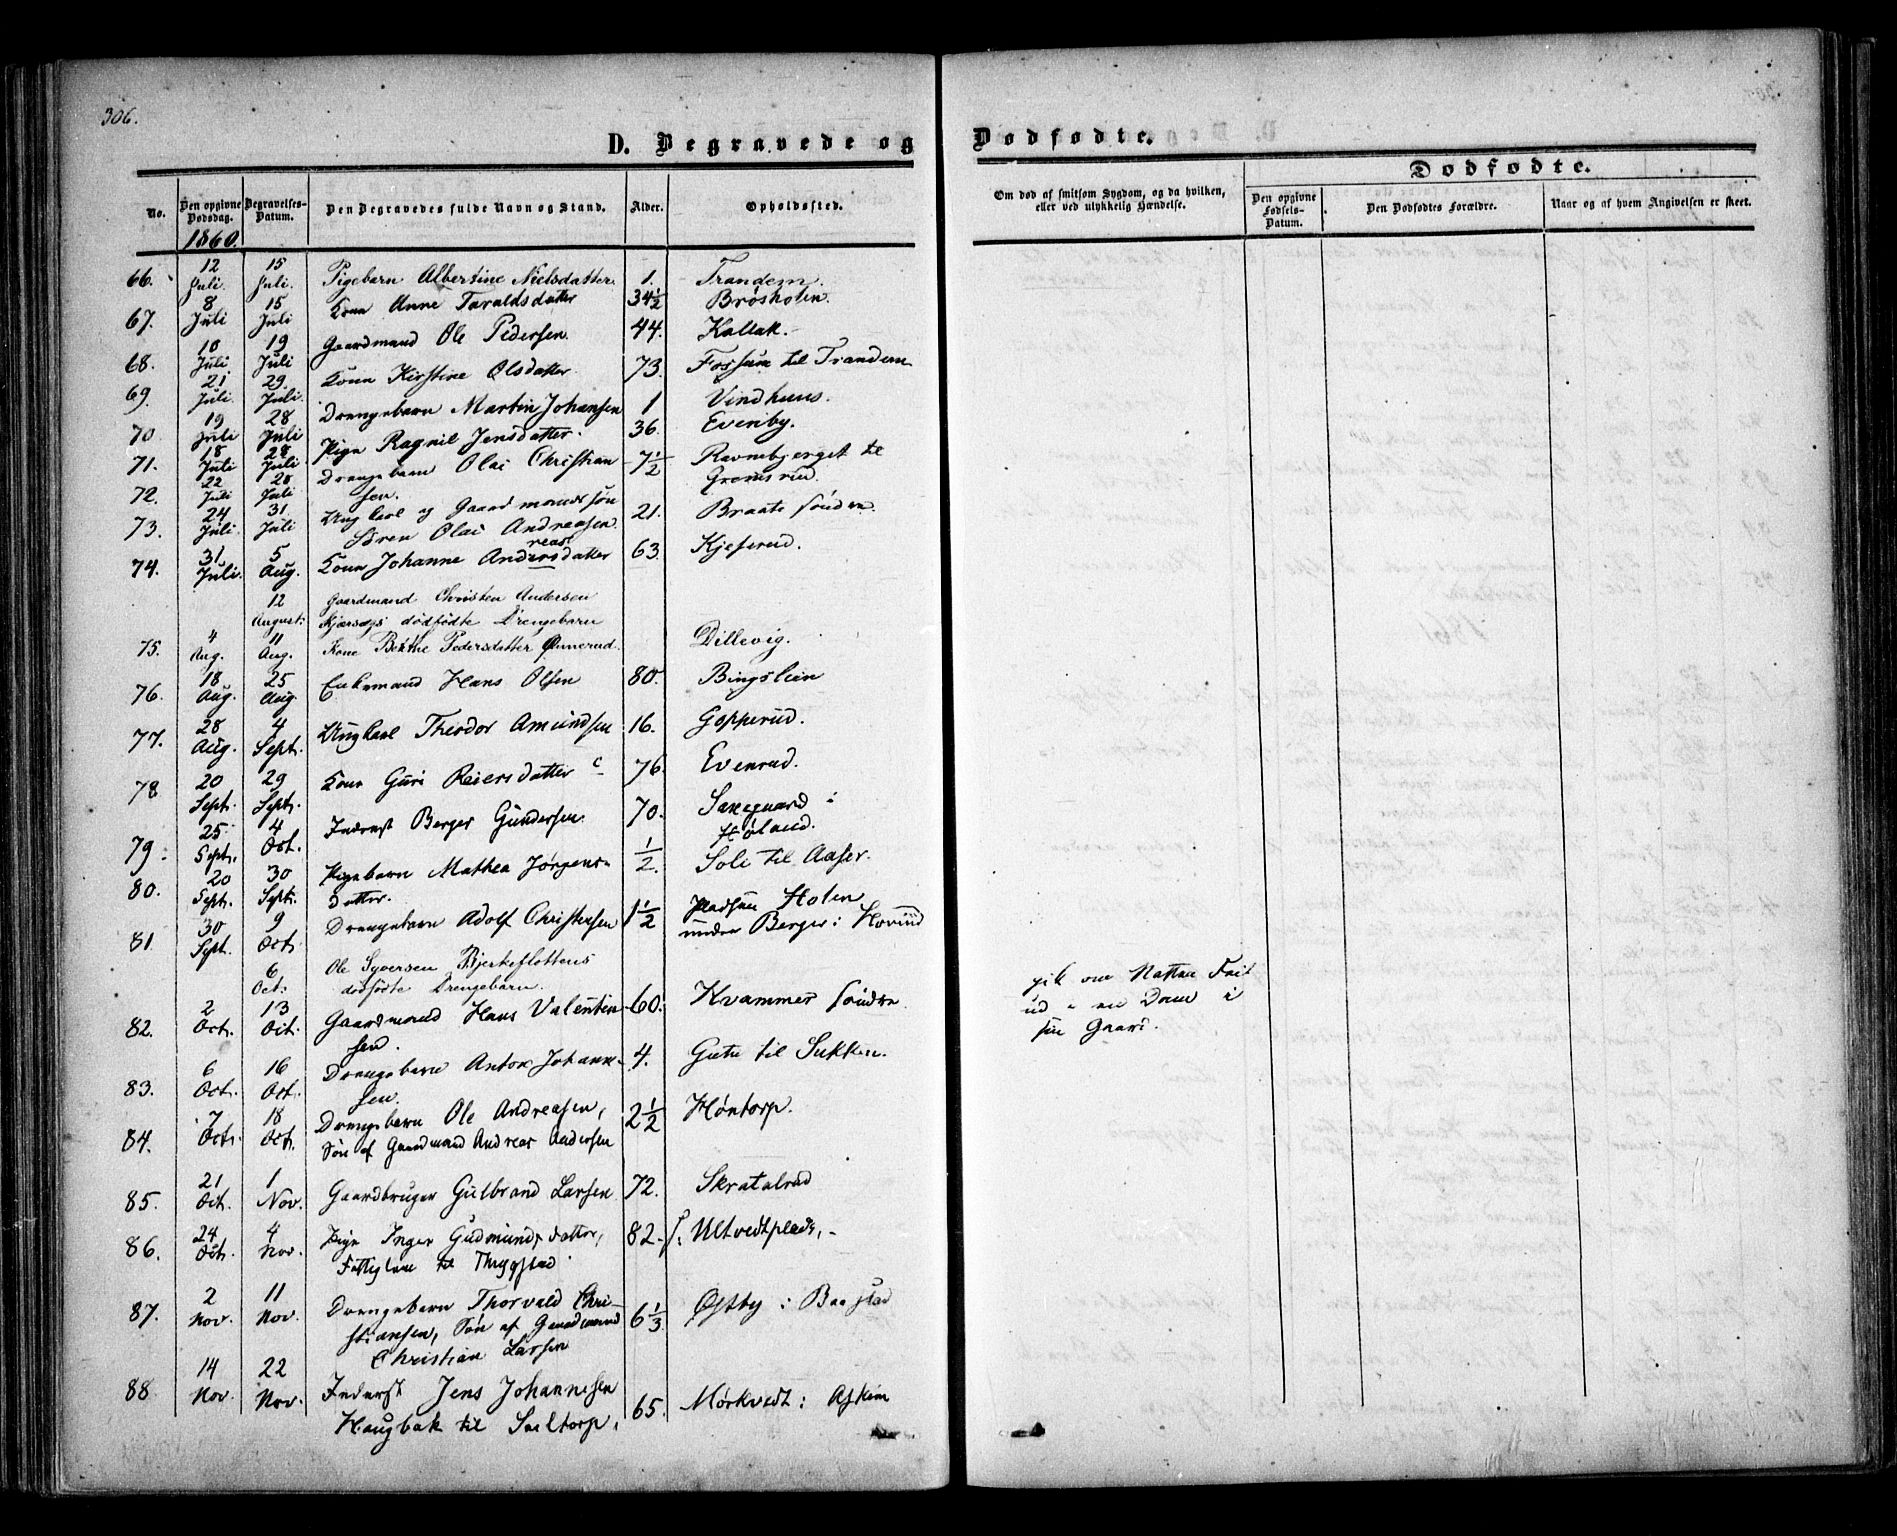 306.
D. Begravede og Dødfødte.
No. Den opgivne Dødsdag. Begravelses-Datum. Den Begravedes fulde Navn og Stand. Alder. Opholdssted.
Om død af smitsom Sygdom, og da hvilken, eller ved ulykkelig Hændelse.
Dødfødte.
Den opgivne Fødsels-Datum. Den Dødfødtes Forældre. Naar og af hvem Angivelsen er skeet.
1860.
66. 12 Juli. 15 Juli. Pigebarn Albertine Nielsdatter. 1. Trandem.
67. 8 Juli 15 Juli Kone Anne Taraldsdatter 34½ Brøsholen.
68. 10 Juli 19 Juli Gaardmand Ole Pedersen. 44. Kallak.
69. 21 Juli 29. Juli. Kone Kirstine Olsdatter. 73. Fossum til Trandem
70. 19 Juli 28 Juli Drengebarn Martin Johansen 1 Vindhuus.
71. 18 Juli 28 Juli Pige Ragnil Jensdatter. 36. Evenby.
72. 22 Juli 28 Juli Drengebarn Olai Christian
sen. 7½ Ravnebjerget til
Gremsrud.
73. 24 Juli. 31 Juli Ungkarl og Gaardmandssøn
Søren Olai Andreasen. 21. Braate søndre
74. 31 Juli. 5 Aug. Kone Johanne Andersdatter 63. Kjeserud.
reas
12 August: Gaardmand Christen Andersen
Kjærsags dødfødte Drengebarn
75. 4 Aug. 11 Aug. Kone Berthe Pedersdatter Dillevig.
76. 18 Aug. 25 Aug. Enkemand Hans Olsen 80. Bingslein
77. 28 Aug. 4 Sept. Ungkarl Theodor Amundsen 16. Gopperud.
78. 20 Sept. 29 Sept. Kone Guri Reiersdatter 76. Evenrud.
79. 25 Sept. 4 Oct. Inderst Berger Gundersen. 70. i
Høland.
80. 20 Sept. 30 Sept. Pigebarn Mathea Jørgens-
datter. ½. Soli til Aaser.
81. 30 Sept. 9 Oct. Drengebarn Adolf Christensen 1½ Pladsen Holen
under Berger i Hovind
6 Oct: Ole Syversen Bjerkeflottens
dødfødte Drengebarn.
82. 2 Oct. 13 Oct. Gaardmand Hans Valentin
sen. 60. Kvammer søndre gik om Natten
ud i en Dam i
sin Gaard.
83. 6 Oct. 16 Oct. Drengebarn Anton Johanne-
sen. 4. til Sukken.
84. 7 Oct. 18 Oct. Drengebarn Ole Andreasen,
Søn af Gaardmand Andreas Andersen 2½ Høntorp.
85. 21 Oct. 1 Nov. Gaardbruger Gulbrand Larsen 72. Skratalrud
86. 24 Oct. 4 Nov. Pige Inger Gudmundsdatter,
Fattiglem til Thrygstad. 82. Ultvedtplads.
87. 2 Nov. 11 Nov. Drengebarn Thorvald Chri-
stiansen, Søn af Gaardmand
Christian Larsen 6⅓ Østby i Baastad
88. 14 Nov. 22 Nov. Inderst Jens Johannesen
Haugbak til Saltorp. 65. Mørkvedt i Askim